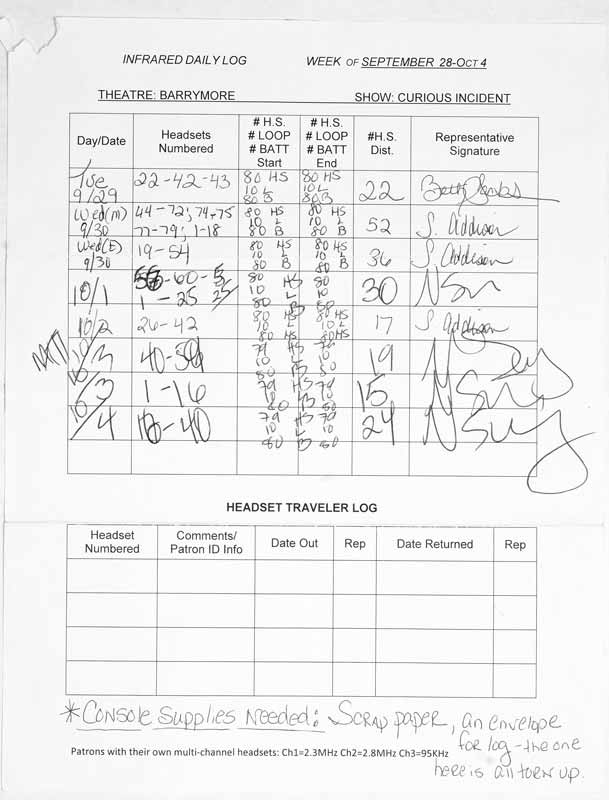 INFRARED DAILY LOG WEEK OF SEPTEMBER 28-OCT 4
THEATRE: BARRYMORE SHOW: CURIOUS INCIDENT
Day/Date Headsets Numbered # H.S. # LOOP # BATT Start # H.S. # LOOP # BATT End #H.S. Dist. Representative Signature
Tue 9/29 22-42-43 80 HS 10 L 80 B 80 HS 10 L 80 B 22
Wed(M) 9/30 44-72; 74-75 77-79; 1-18 80 HS 10 L 80 B 80 HS 10 L 80 B 52 S. Addison
Wed(E) 9/30 19-54 80 HS 10 L 80 B 80 HS 10 L 80 B 36 S. Addison
10/1 -60- 1-25 80 HS 10 L 80 B 80 10 30
10/2 26-42 80 HS 10 L 80 B 80 HS 10 L 80 HS 17 S. Addison
MATT 10/3 40- 79 HS 10 L 80 B 79 10 80 19
10/3 1-16 79 HS 10 L 80 B 79 10 80 15
10/4 -40 79 HS 10 L 80 B 79 10 80 24
HEADSET TRAVELER LOG
Headset Numbered Comments/ Patron ID Info Date Out Rep Date Returned Rep
*Console Supplies Needed: Scrap paper, an envelope
for log - the one
Patrons with their own multi-channel headsets: Ch1=2.3MHz Ch2=2.8MHz Ch3=95KHz
here is all torn up.